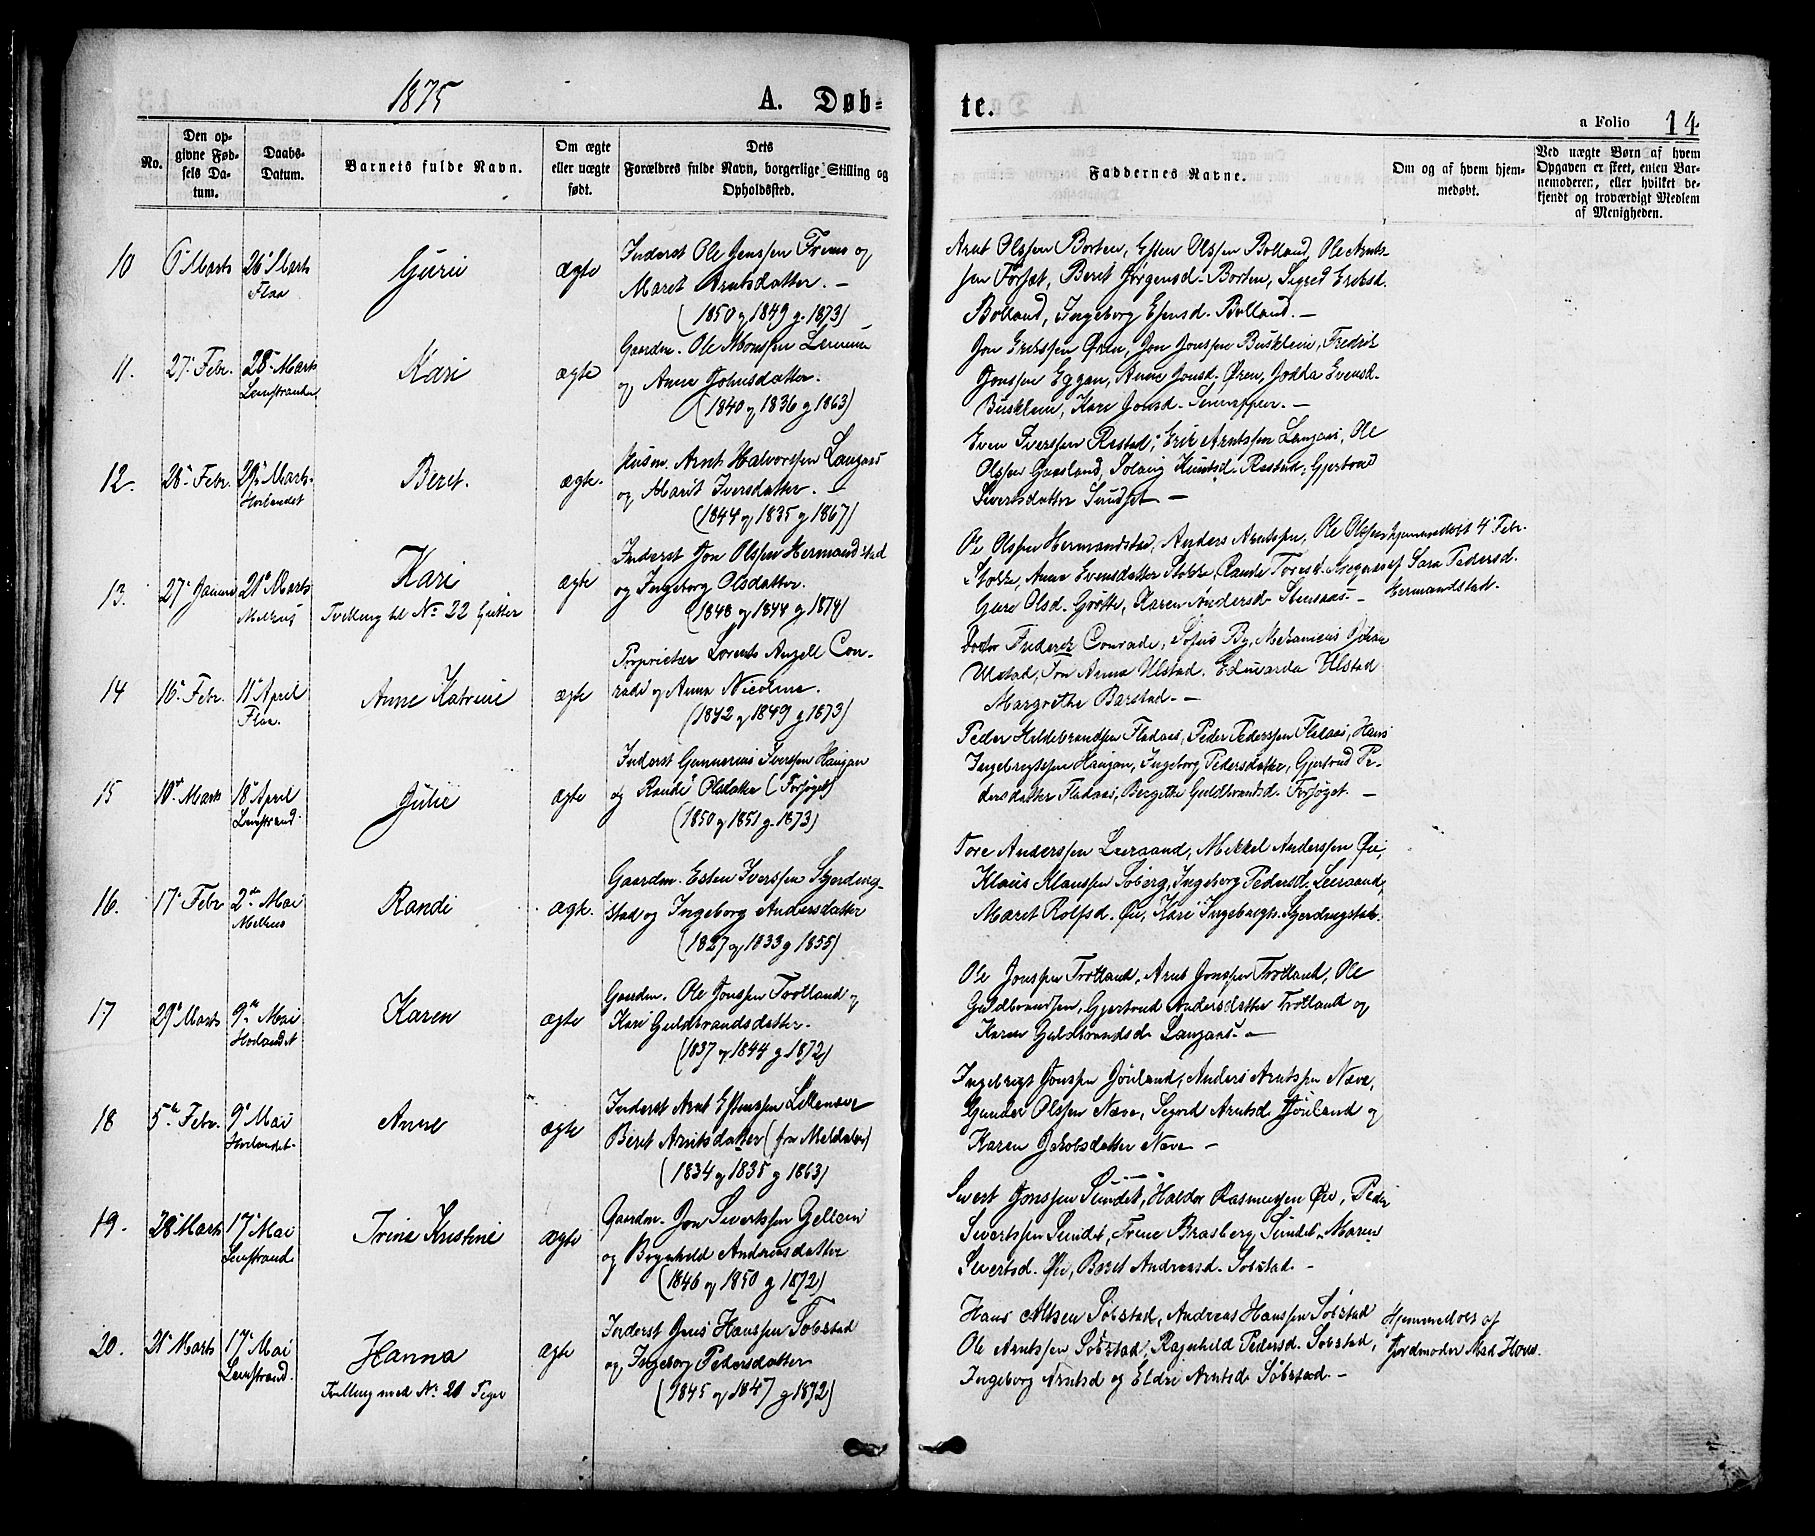 1875
A. Døb-
te.
a Folio 14
No.
Den op-
givne Fød-
sels Da-
tum.
Daabs-
Datum.
Barnets fulde Navn.
Om ægte
eller uægte
født.
Dets
Forældres fulde Navn, borgerlige Stilling og
Opholdssted.
Faddernes Navne.
Om og af hvem hjem-
medøbt.
Ved uægte Børn af hvem
Opgaven er skeet, enten Bar-
nemoderen, eller hvilket be-
kjendt og troværdigt Medlem
af Menigheden.
10 6 Marts 26 Marts
Flaa
Guru
ægte
Inderst Ole Jenssen Trems og
Maret Arntsdatter. —
(1850 og 1849 g. 1873)
Arnt Olssen Borten, Esten Olssen Bolland, Ole Arnts-
sen Forset, Berit Jørgensd. Borten, Sigrid Eriksd.
Bolland, Ingeborg Esensd. Bolland. —
11. 27 Febr. 28 Marts
Leinstranden
Kari
ægte
Gaardm. Ole Monssen
og Anne Johnsdatter.
(1840 og 1836 g 1863)
Jon Erikssen Øren, Jon Jonssen Busklein, Fredrik
Jonssen Eggan, Anne Jonsd. Øren, Jodda Evensd.
Busklein, Kari Jonsd. —
12. 28 Febr. 29 Marts
Horlandet
Beret.
ægte.
Husm. Arnt Halvorssen Langaas
og Marit Iversdatter. —
(1844 og 1835 g 1867)
Even Iverssen Rostad, Erik Arntssen Langaas, Ole
Olssen Gaasland, Solvig Knutsd. Rostad, Gjertrud
Sivertsdatter Sundset. —
13. 27 Januar 21 Marts
Melhus
Kari
Tvilling til No 22 Gutter
ægte
Inderst Jon Olssen Hermandstad
og Ingeborg Olsdatter.
(1848 og 1844 g 1874)
Ole Olssen Hermandstad, Anders Arntssen, Ole Olssen
Stokke, Anne Evensdatter Stokke, Randi Toresd.
Guri Olsd. Grøtte, Karen Andersd. Stensaas. —
Hjemmedøbt 4 Febr.
af Sara Pedersd.
Hermandstad.
14 16 Febr. 11 April
Flaa.
Anne Katrine
ægte
Proprietær Lorents Angell Con-
radi og Anna Nicoline.
(1842 og 1849 g 1873)
Doctor Frederik Conrade, Sofus By, Mekanicus Johan
Ulstad, Anna Ulstad, Eduarda Ulstad
Margrethe Barstad. —
15 10 Marts 18 April
Leinstrand.
Julie
ægte
Inderst Gunnerius Iverssen Haugan
og Randi Olsdatter (Forsøget)
(1850 og 1851 g. 1873)
Peder Hildebrandsen Fladaas, Peder Pederssen Fladaas, Hans
Ingebrigtssen Haugan, Ingeborg Pedersdatter, Gjertrud Pe-
dersdatter Fladaas, Bergithe Guldbrandsd. Forsøget. —
16. 17 Febr 2den Mai
Melhus
Randi
ægte.
Gaardm. Esten Iverssen Skjerding-
stad og Ingeborg Andersdatter
(1827 og 1833 g 1855)
Tore Anderssen Leeraand, Mikkel Anderssen Øie,
Klaus Klaussen Søberg, Ingeborg Pedersd. Leeraand,
Maret Rolfsd. Øie, Kari Ingebrigts. Skjerdingstad.
17 29 Marts 9de Mai
Horlandet
Karen
ægte
Gaardm. Ole Jonssen Trotland og
Kari Guldbrandsdatter.
(1837 og 1844 g 1872)
Ole Jonssen Trotland, Arnt Jonssen Trotland, Ole
Guldbrandsen, Gjertrud Andersdatter Trotland og
Karen Guldbrandsd. Langaas. —
18 5te Febr. 9 Mai
Horlandet.
Anne
ægte
Inderst Arnt Estenssen
Beret Arntsdatter (fra Meldalen)
(1834 og 1835 g 1863)
Ingebrigt Jonssen Jøuland, Anders Arntssen Næve,
Gunder Olssen Næve, Sigrid Arntsd. Jøuland og
Karen Jakobsdatter Næve —
19. 28 Marts 17 Mai
Leinstrand.
Trine Kristine
ægte
Gaardm. Jon Sivertssen Gellein
og Brynhild Andreasdatter
(1846 og 1850 g 1872)
Sivert Jonssen Sundet, Haldor Rasmussen Øie, Peder
Sivertssen Sundet, Trine Brasberg Sundet, Maren
Sivertsd. Øie, Beret Andreasd. Sobstad. —
20. 21 Marts 17 Mai
Leinstrand.
Hanna
Tvilling med No 21 Piger
ægte
Inderst Jens Hanssen Sobstad
og Ingeborg Pedersdatter
(1845 og 1847 g 1872)
Hans Altsen Sobstad, Andreas Hanssen Sobstad
Ole Arntssen Sobstad, Ragnhild Pedersd. Sobstad,
Ingeborg Arntsd og Eldri Arntsd Sobstad. —
Hjemmedøbt af
Jordmoder Mad. Hovs.